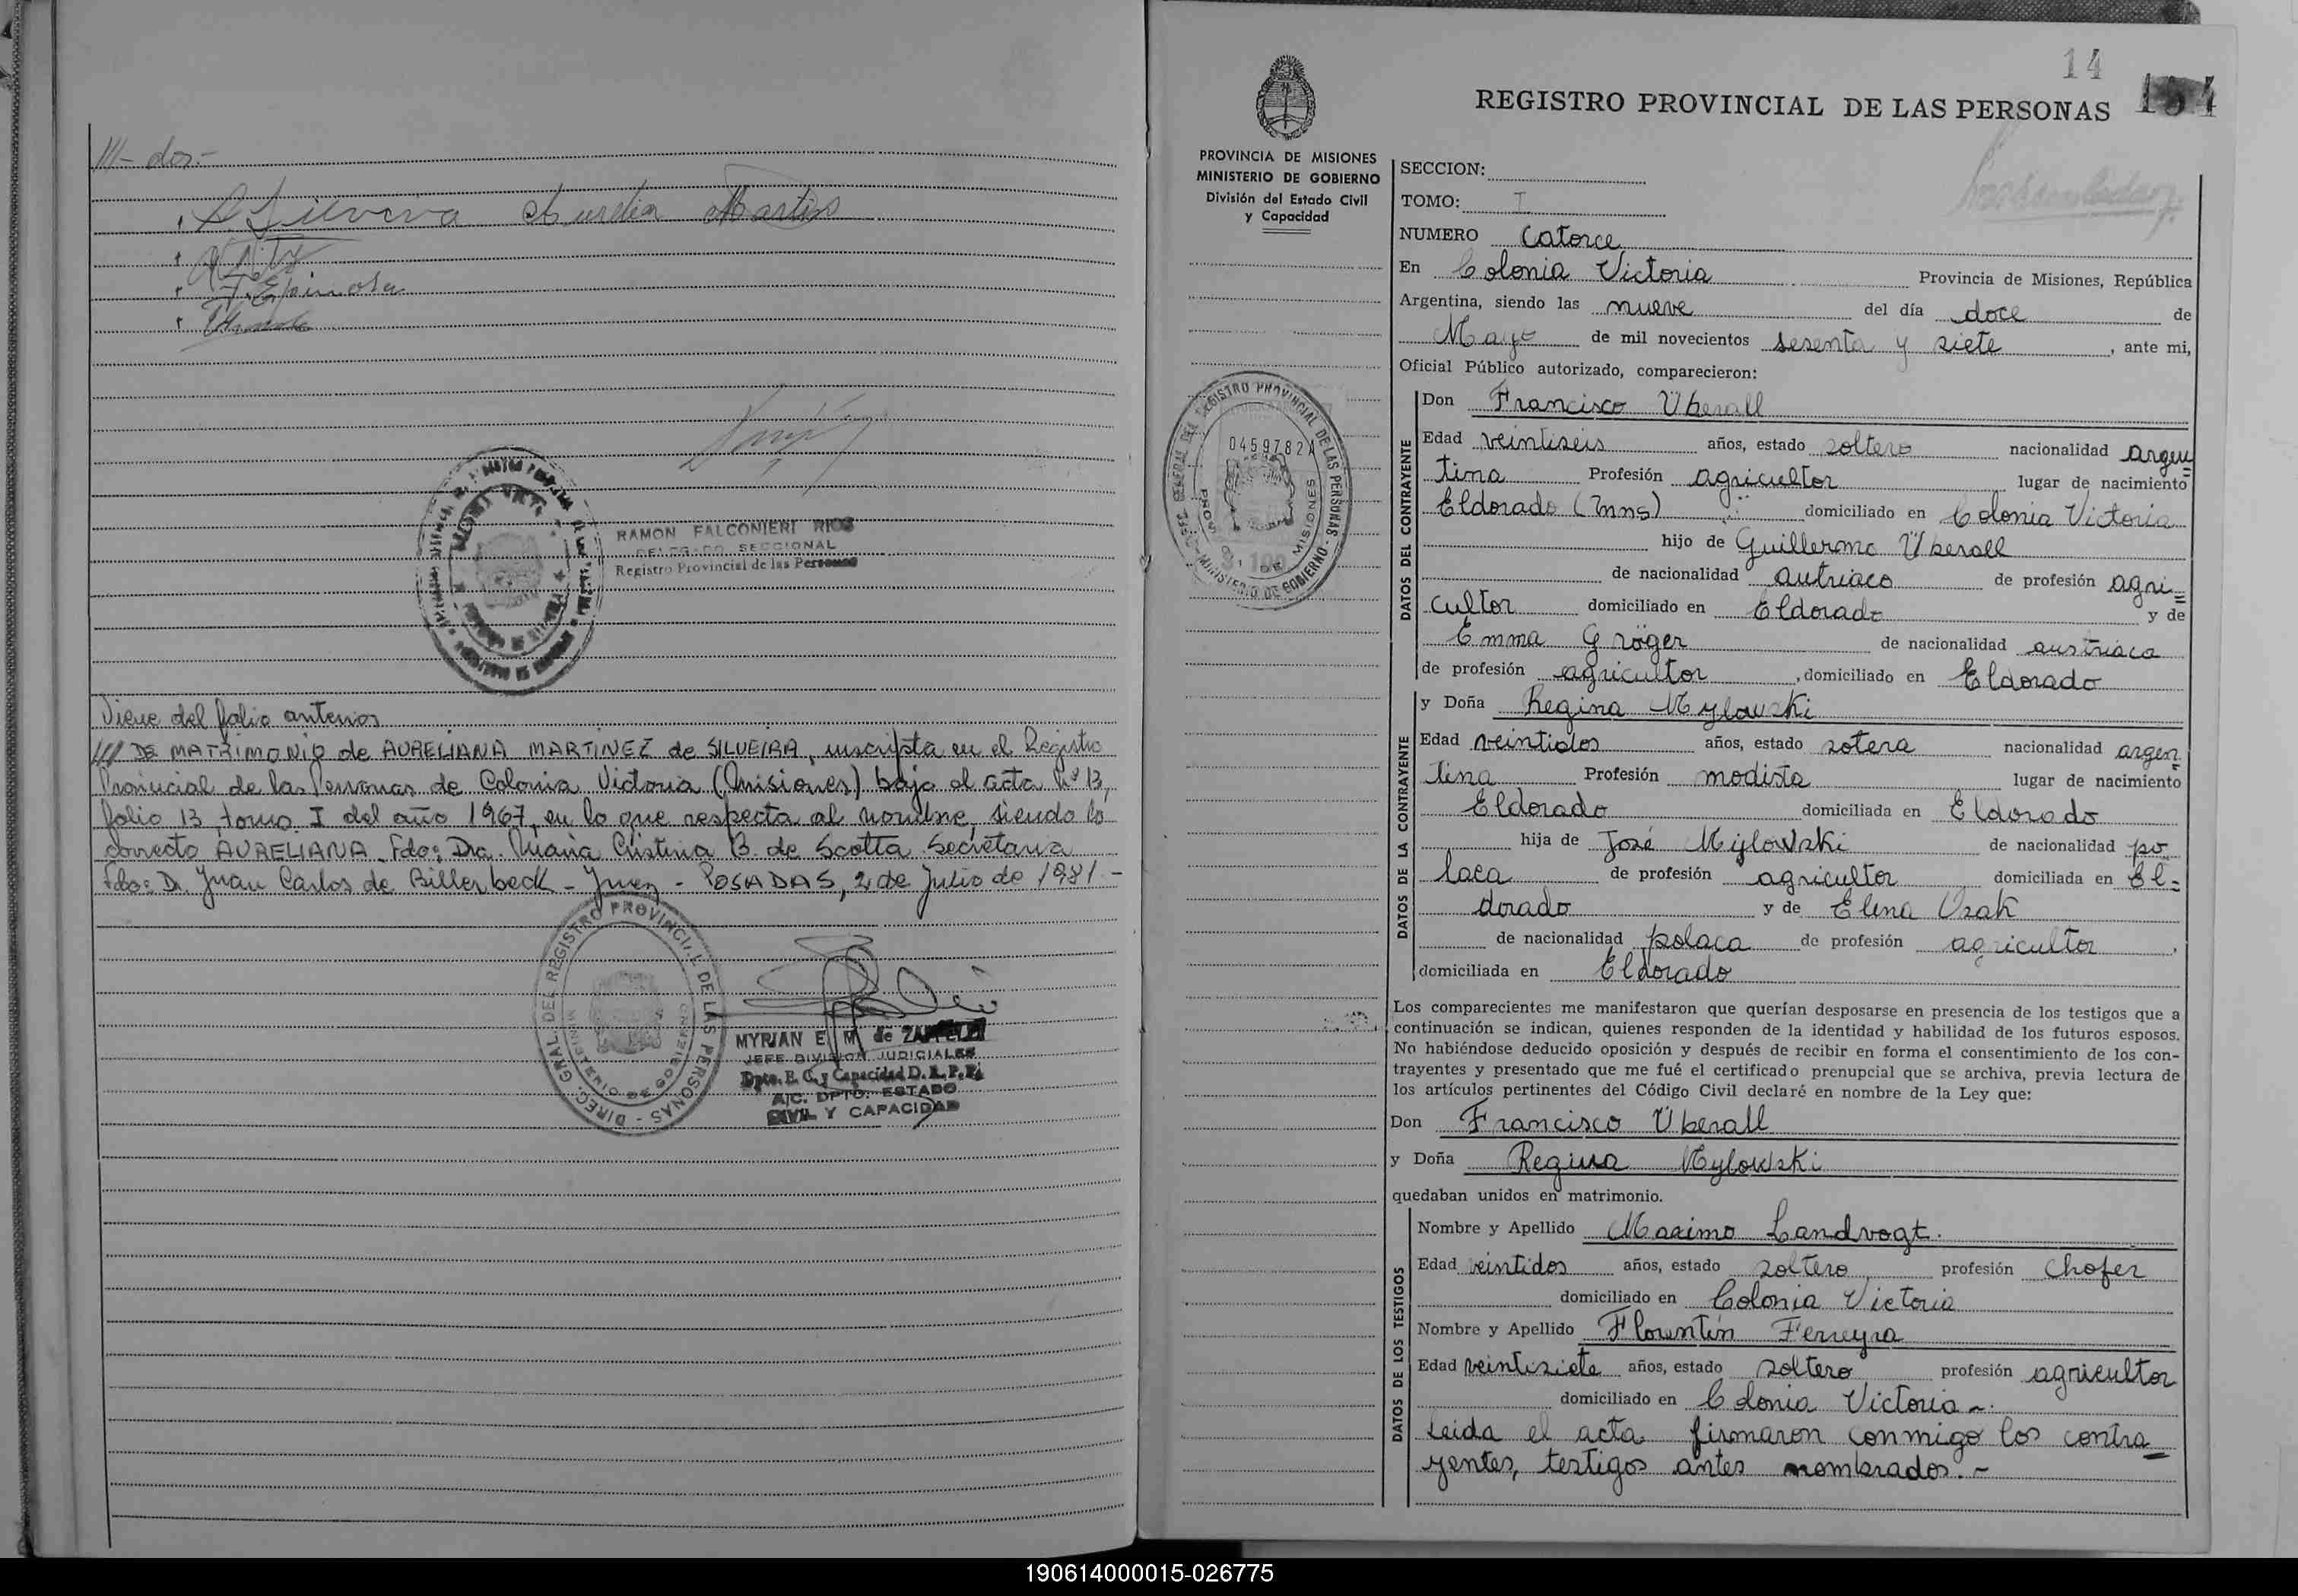 III- dos.-
Aurelia Martins
F. Espinosa
RAMON FALCONIERI RIOS
DELEGADO SECCIONAL
Registro Provincial de las Personas
Viene del folio anterior
/// DE MATRIMONIO de AURELIANA MARTINEZ de SILVEIRA, inscripta en el Registro
Provincial de las Personas de Colonia Victoria (Misiones) bajo el acta Nº 13,
folio 13, tomo I del año 1967, en lo que respecta al nombre, siendo lo
correcto AURELIANA. Fdo: Dra. Maria Cristina B. de Scotta Secretaria
Fdo: Dr. Juan Carlos de Billerbeck - Juez - POSADAS, 2 de Julio de 1981 -
DIREC. GRAL. DEL REGISTRO PROVINCIAL DE LAS PERSONAS
MYRIAN E. M. de
JEFE DIVISION JUDICIALES
Dpto. E. C. y Capacidad D. R. P. P.
A/C. DPTO. ESTADO
CIVIL Y CAPACIDAD
14
REGISTRO PROVINCIAL DE LAS PERSONAS
PROVINCIA DE MISIONES
MINISTERIO DE GOBIERNO
División del Estado Civil
y Capacidad
0459782
SECCION:
TOMO: I
NUMERO Catorce
En Colonia Victoria Provincia de Misiones, República
Argentina, siendo las nueve del día doce de
Mayo de mil novecientos sesenta y siete, ante mi,
Oficial Público autorizado, comparecieron:
DATOS DEL CONTRAYENTE
Don Francisco Überall
Edad veintiseis años, estado soltero nacionalidad argen=
tina Profesión agricultor lugar de nacimiento
Eldorado (Mns) domiciliado en Colonia Victoria
hijo de Guillermo Überall
de nacionalidad autriaco de profesión agri=
cultor domiciliado en Eldorado y de
Emma Gröger de nacionalidad austriaca
de profesión agricultor, domiciliado en Eldorado
DATOS DE LA CONTRAYENTE
y Doña Regina Mylowski
Edad veintidos años, estado sotera nacionalidad argen=
tina Profesión modista lugar de nacimiento
Eldorado domiciliada en Eldorado
hija de José Mylowski de nacionalidad po
laca de profesión agricultor domiciliada en El=
dorado y de Elena
de nacionalidad polaca de profesión agricultor,
domiciliada en Eldorado
Los comparecientes me manifestaron que querían desposarse en presencia de los testigos que a
continuación se indican, quienes responden de la identidad y habilidad de los futuros esposos.
No habiéndose deducido oposición y después de recibir en forma el consentimiento de los con-
trayentes y presentado que me fué el certificado prenupcial que se archiva, previa lectura de
los artículos pertinentes del Código Civil declaré en nombre de la Ley que:
Don Francisco Überall
y Doña Regina Mylowski
quedaban unidos en matrimonio.
DATOS DE LOS TESTIGOS
Nombre y Apellido Maximo Landvogt.
Edad veintidos años, estado soltero profesión chofer
domiciliado en Colonia Victoria
Nombre y Apellido Florentín Ferreyra
Edad veintisiete años, estado soltero profesión agricultor
domiciliado en Colonia Victoria -.
Leida el acta firmaron conmigo los contra=
yentes, testigos antes nombrados. -
190614000015-026775